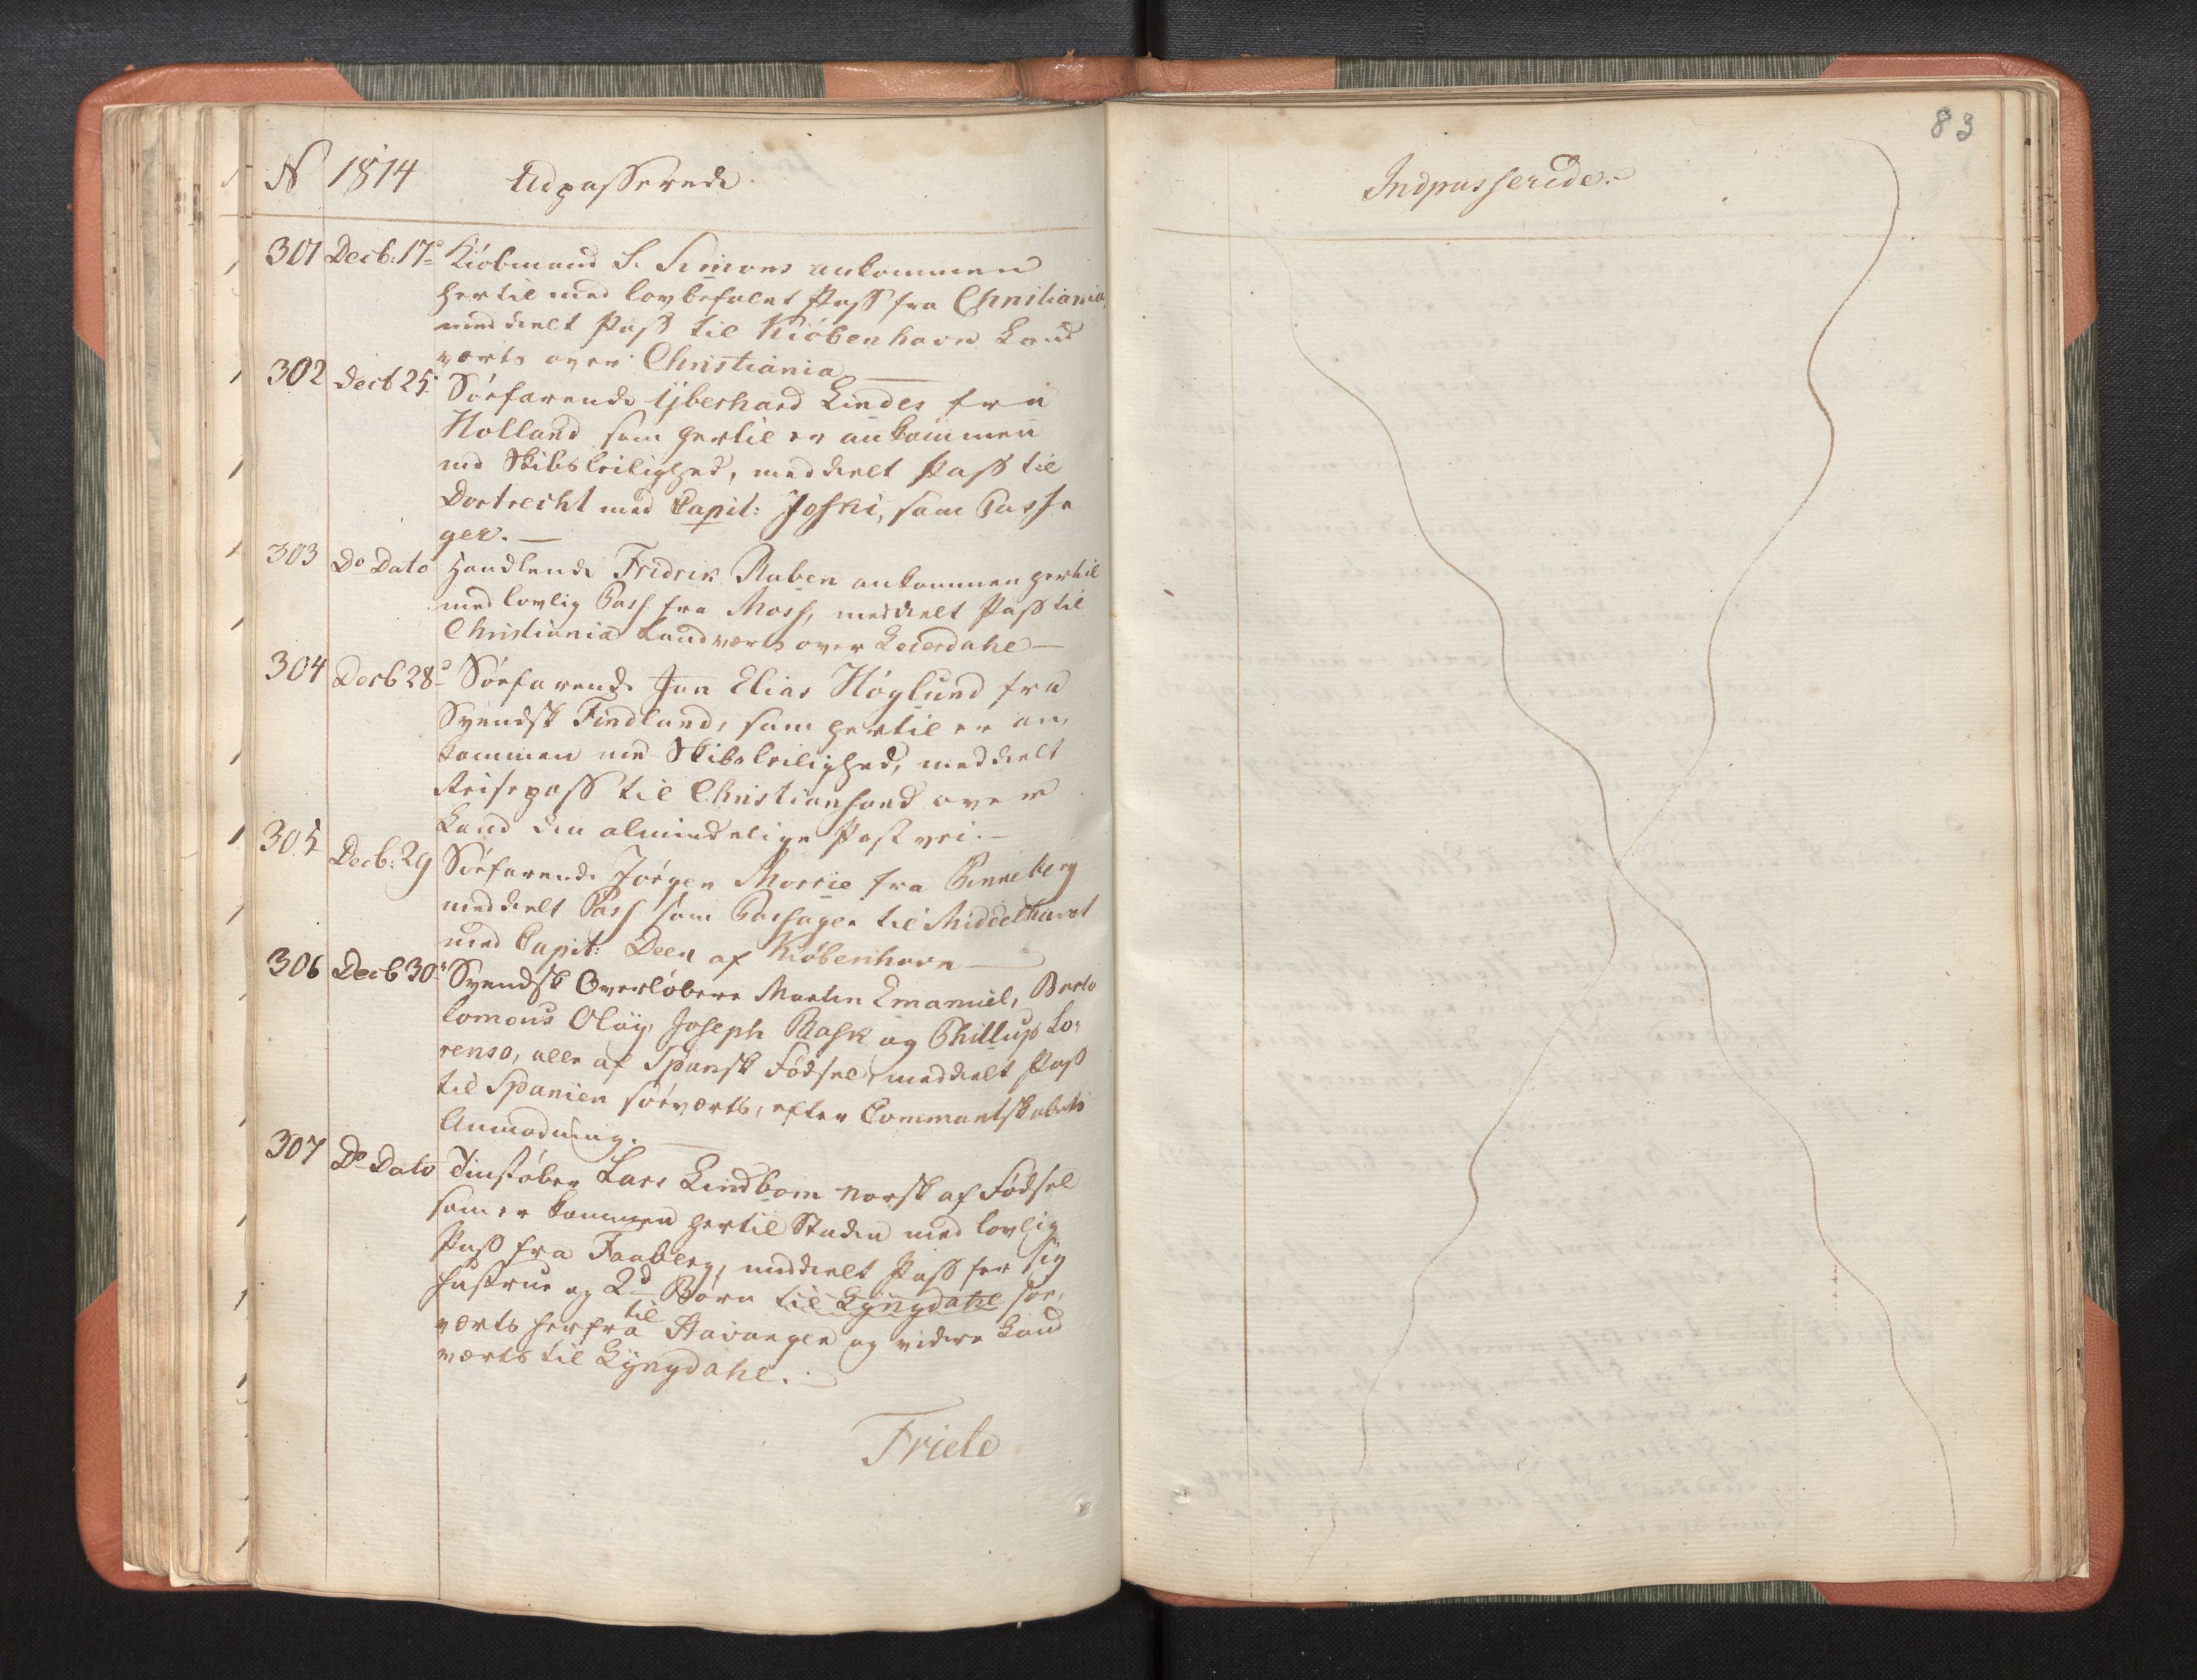 N 1814 Udpasserede.
301 Decb: 17de Kiöbmand S. Simons ankommen
hertil med lovbefalet Pass fra Christiania,
meddeelt Pass til Kiöbenhavn Land
værts over Christiania
302 Decb 25. Söefarende Ejberhard Lindes fra
Holland som hertil er ankommen
med Skibsleilighed, meddeelt Pass til
Dortrecht med Capit: Joski, som Passa
ger.
303 Do Dato Handlende Fridrik Ruben ankommen hertil
med lovlig Pass fra Moss, meddeelt Pass til
Christiania Landværts over Leierdahl
304 Decb 28de Söefarende Jan Elias Höglund fra
Svendsk Findland, som hertil er an,
kommen med Skibsleilighed, meddeelt
Reisepass til Christiansand over
Land den almindelige Postvei.
305 Decb: 29 Söefarende Jörgen Morrie fra Pinneberg
meddeelt Pass som Passager til Middelhavet
med Capit: Deen af Kiöbenhavn
306 Decb 30. Svendsk Overlöbere Martin Emanuel, Barto
lomeus Olöy, Joseph Bask og Phillup Lo,
renso, alle af Spansk Födsel, meddeelt Pass
til Spanien söeværts, efter Commantskabets
Anmodning.
307 Do Dato Tinstöber Lars Lindbom norsk af Födsel
som er kommen hertil Staden med lovlig
Pass fra Faaberg, meddeelt Pass for sig
Hustrue og 2de Börn til Lyngdahl söe,
værts herfra til Stavanger og videre Land
værts til Lyngdahl.
Friele
83
Indpasserede.